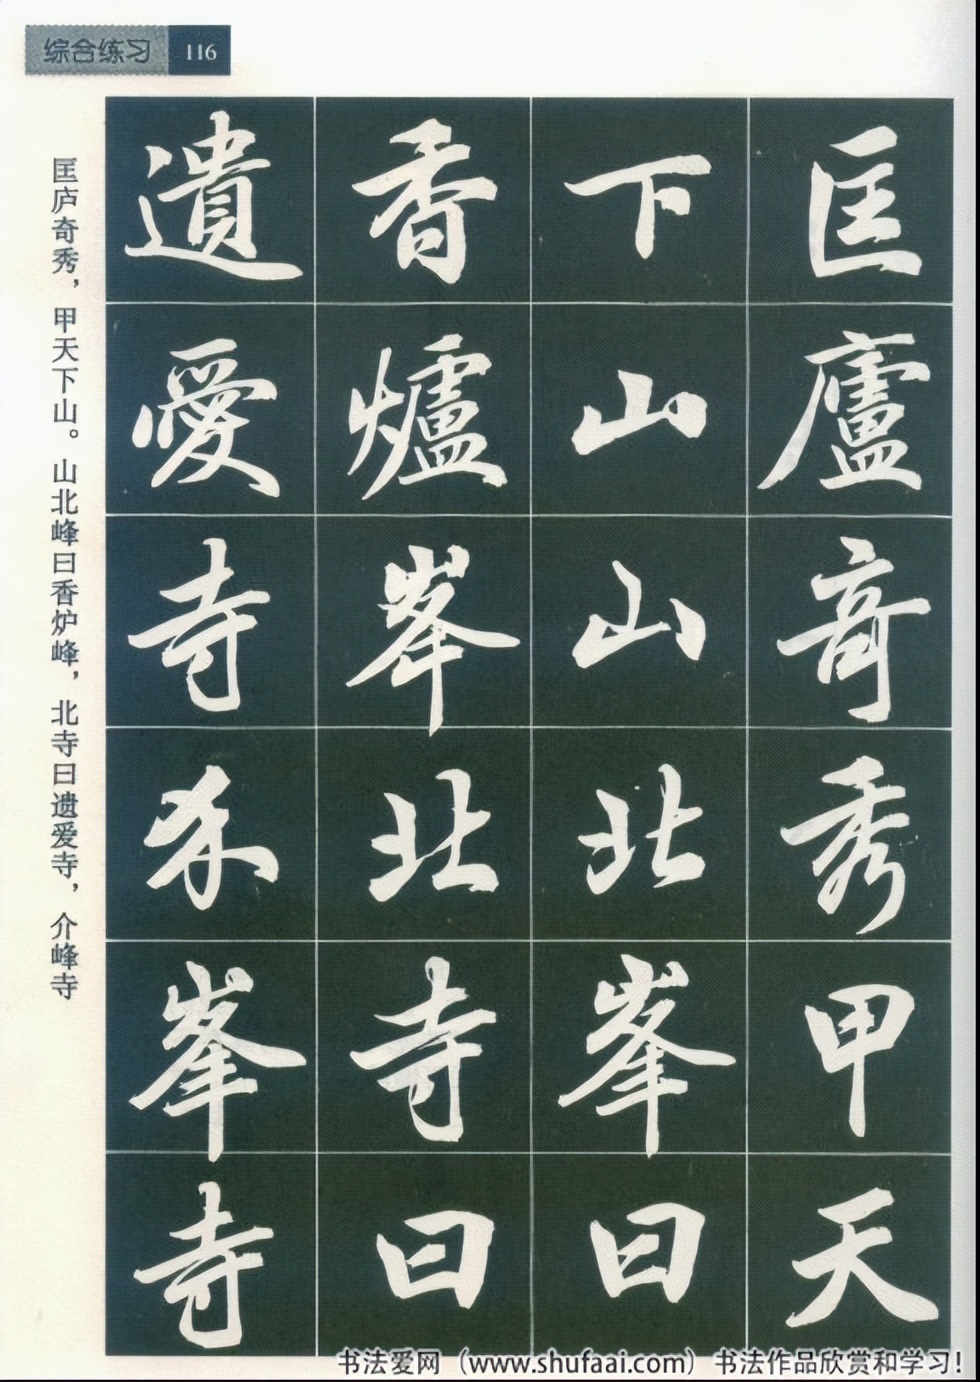 综合练习 116
匡廬奇秀甲天
下山山北峯曰
香爐峯北寺曰
遺愛寺介峯寺
匡庐奇秀，甲天下山。山北峰曰香炉峰，北寺曰遗爱寺，介峰寺
书法爱网（www.shufaai.com）书法作品欣赏和学习！